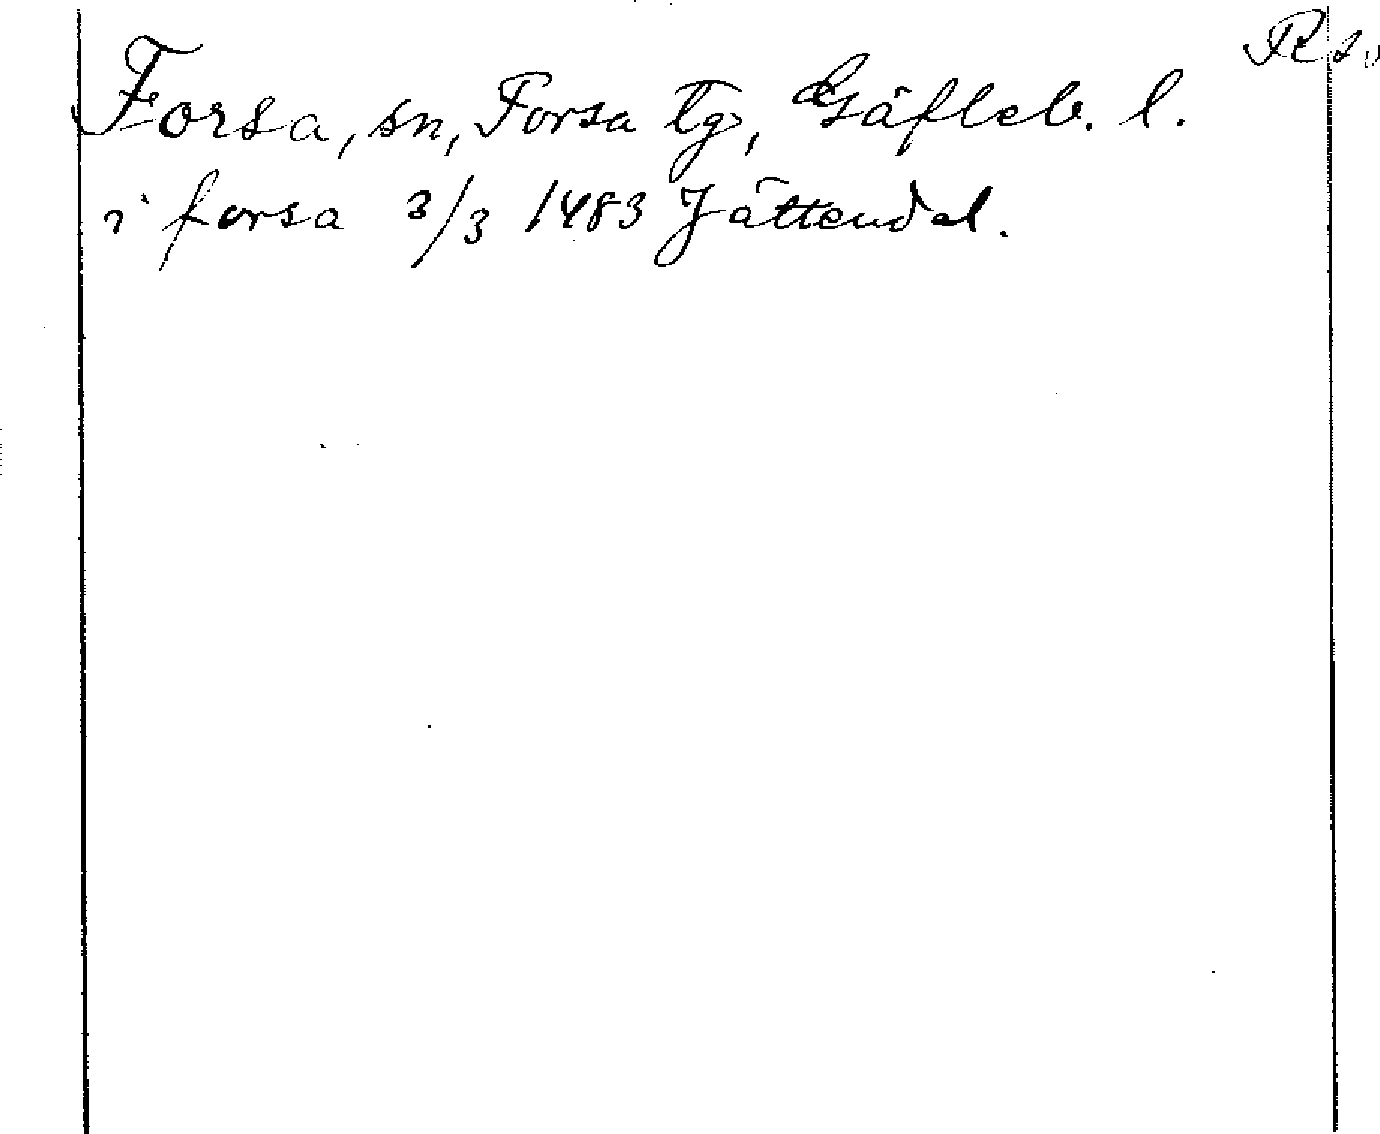 Rs.
Forsa, sn, Forsa tg, Gäfleb. l.
i forsa 3/3 1483 Jättendal.